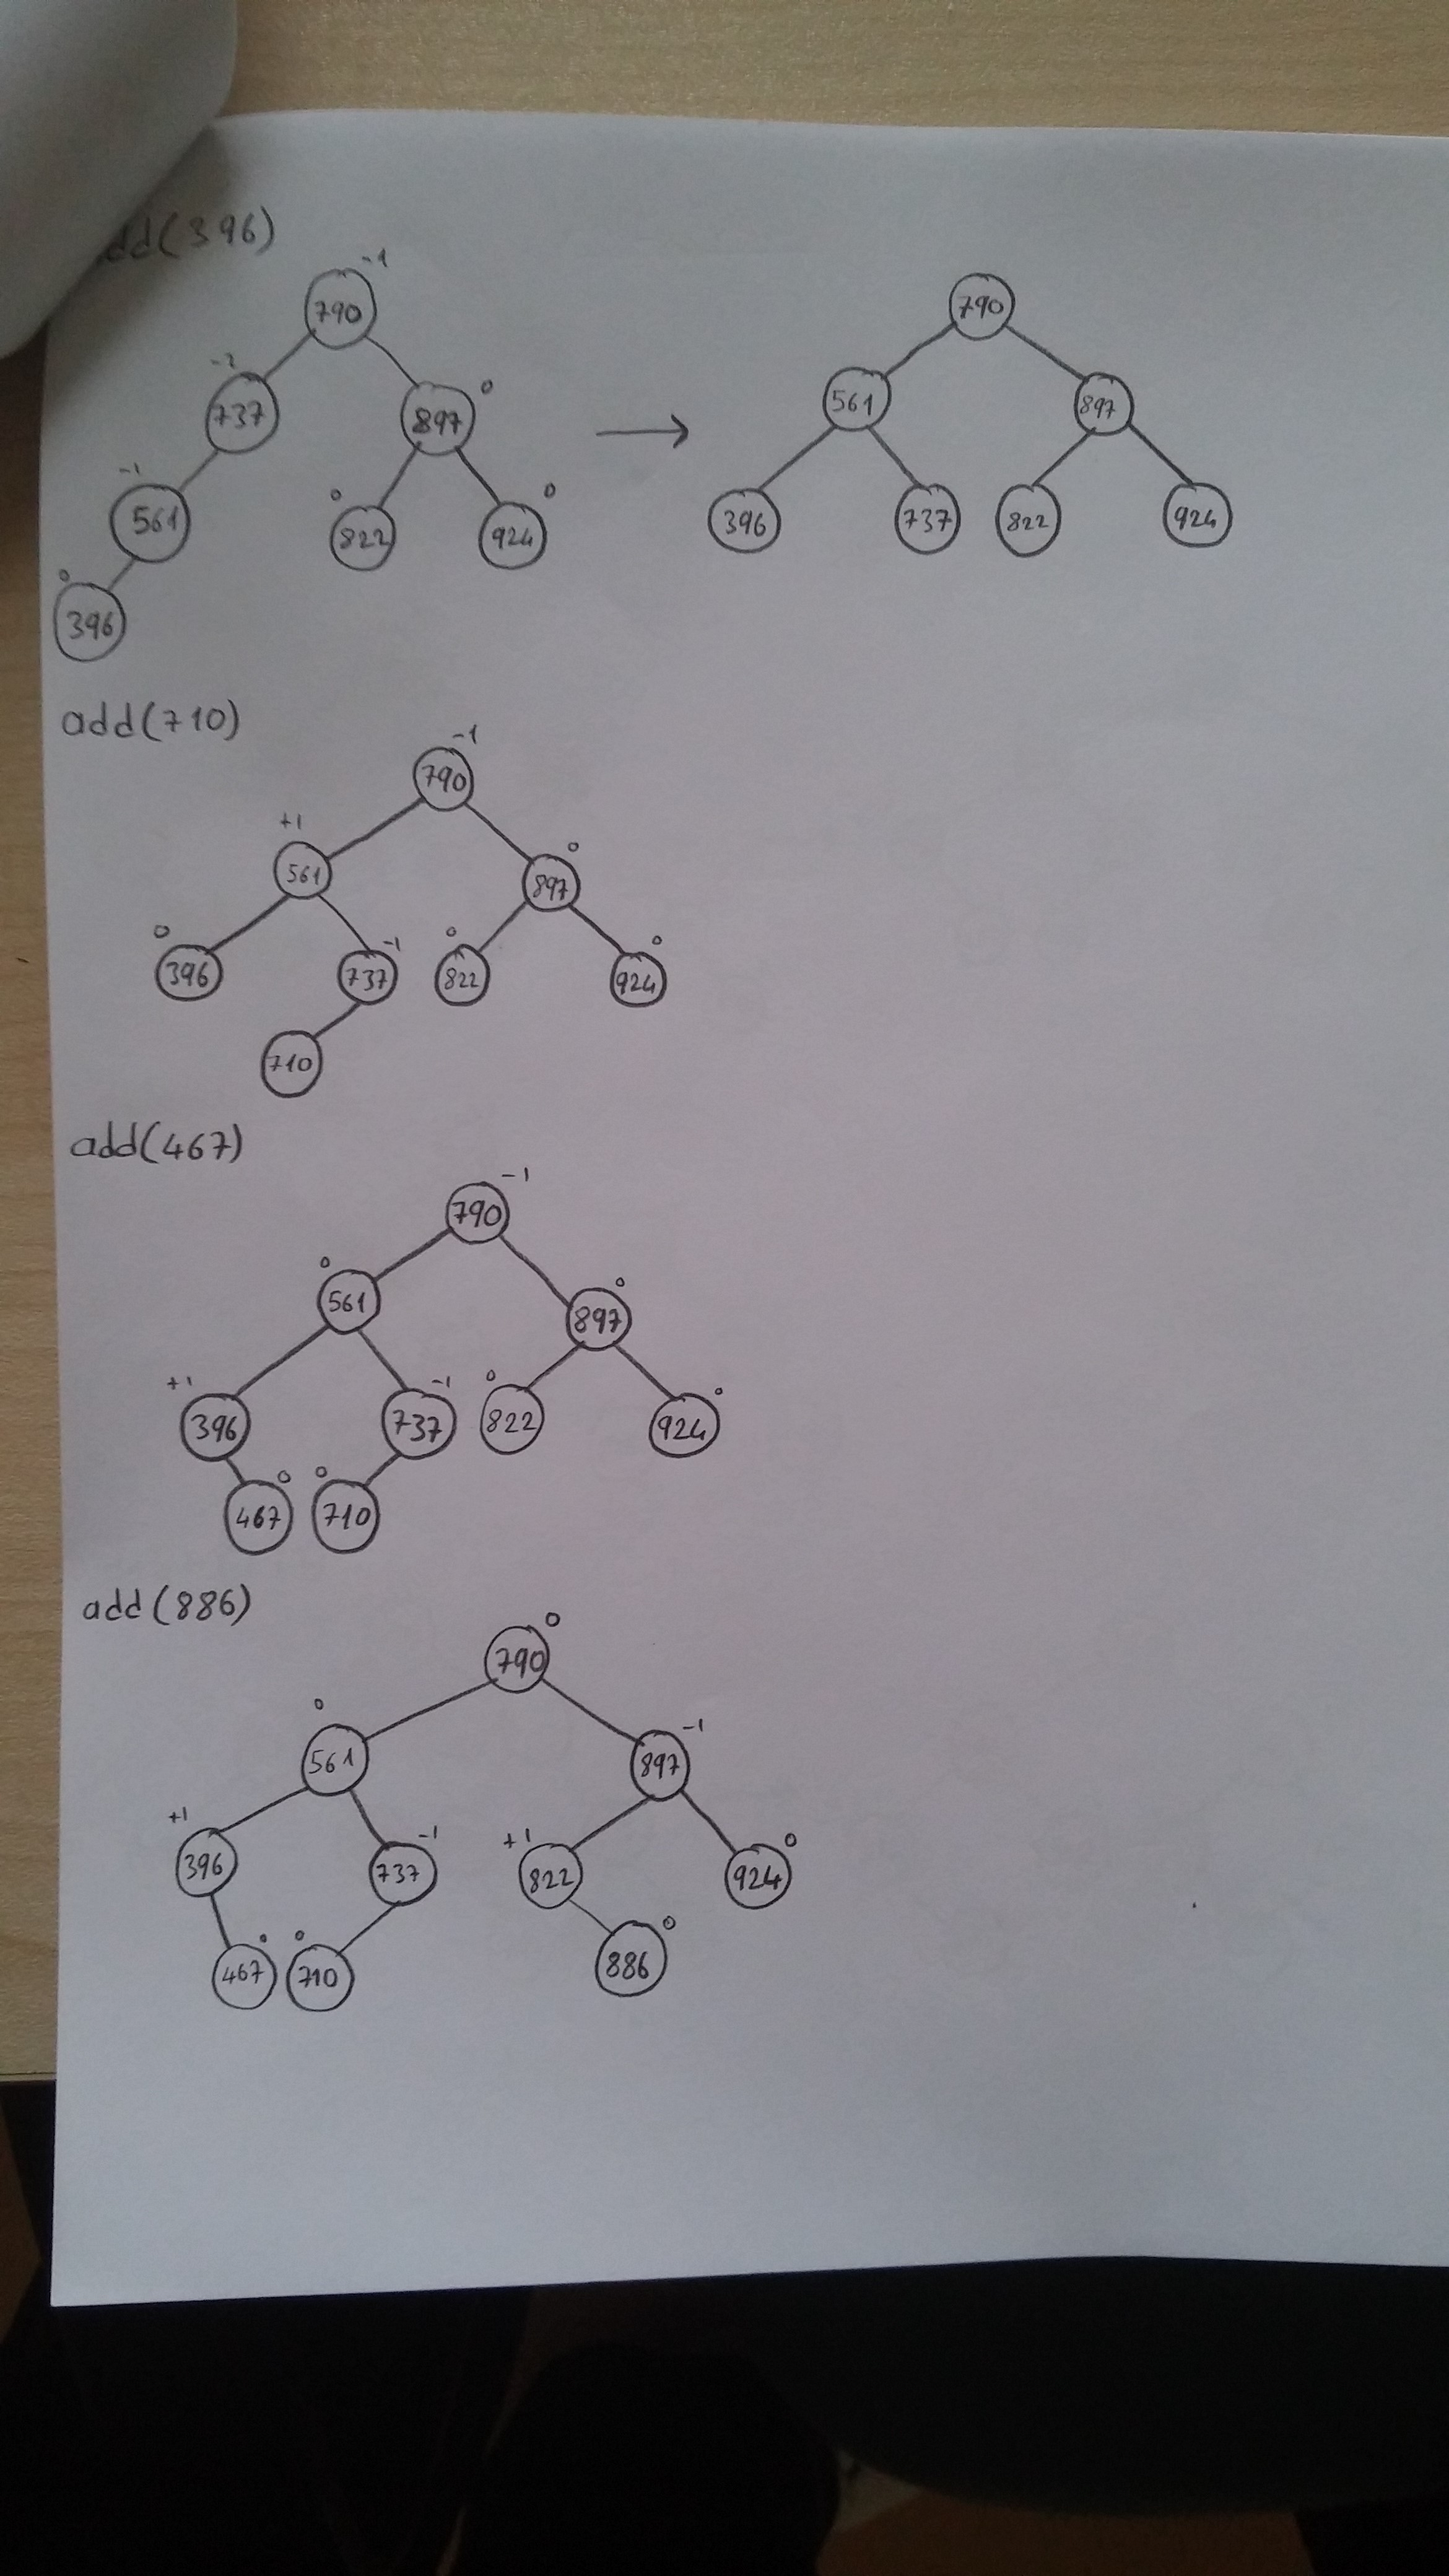 add(396)
-1
790 790
-2
737 0
897 561 897
-1
561 0
822 0
924 396 737 822 924
0
396
add(710)
-1
790
+1
561 0
897
0
396 -1
737 0
822 0
924
710
add(467)
-1
790
0
561 0
897
+1
396 -1
737 0
822 0
924
467 0 0
710
add(886)
0
790
0
561 -1
897
+1
396 -1
737 +1
822 0
924
467 0 0
710 0
886